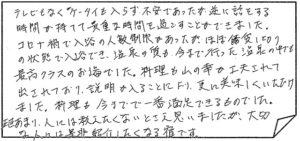 テレビもなくケータイも入らず不安であったが逆に話をする
時間が持てて貴重な時間を過ごすことができました。
コロナ禍で入浴の人数制限があったがほぼ貸切り
の状態で入浴でき、温泉の質も今まで行った温泉の中でも
最高クラスのお湯でした。料理も山の幸が工夫されて
出されており、説明が入ることにより、更に美味しくいただけ
ました。料理も今までで一番満足できるものでした。
あまり、人には教えたくないとさえ思いましたが、大切
な人には是非紹介したくなる宿です。